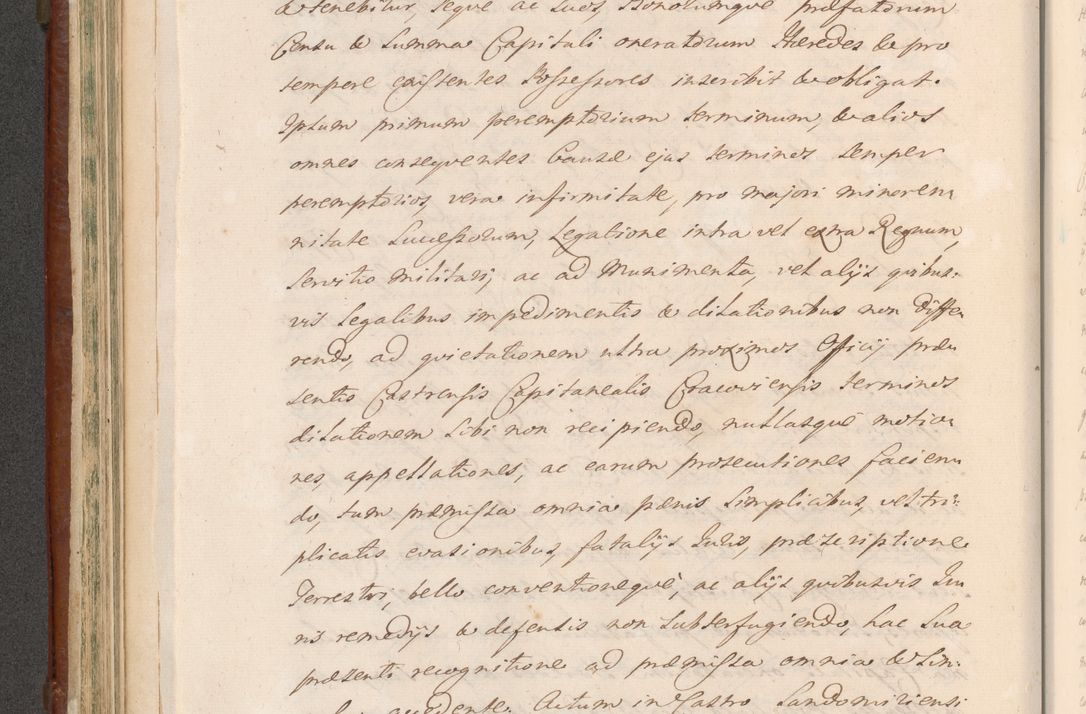 & tenebitur, seque ac suos, Bonorumque præfatorum
Censu & Summa Capitali oneratorum Hæredes & pro
tempere existentes Possessores inscribit & obligat.
Ipsum primum peremptorium terminum, & alios
omnes conseqventes Causæ ejus terminos semper
peremptorios, vera infirmitate, pro majori minoren
nitate Successorum, Legatione intra vel extra Regnum,
servitio militari, ac ad Munimenta, vel alijs qvibus:
vis legalibus impedimentis & dilationibus non diffe
rendo, ad qvietationem ultra proximos Officij præ
sentis Castrensis Capitanealis Cracoviensis terminos
dilationem sibi non recipiendo, nullasque motio
nes, appellationes, ac earum prosecutiones facien
do, tum præmissa omnia pænis simplicibus, vel tri:
plicatis evasionibus, fatalijs Juris, præscriptione
Terrestri, bello conventioneqvè, ac alijs qvibusvis Ju
ris remedijs & defensis non subterfugiendo, hac sua
præsenti recognitione ad præmissa omnia & sin:
accedente. Actum in Castro Sandomiriensi